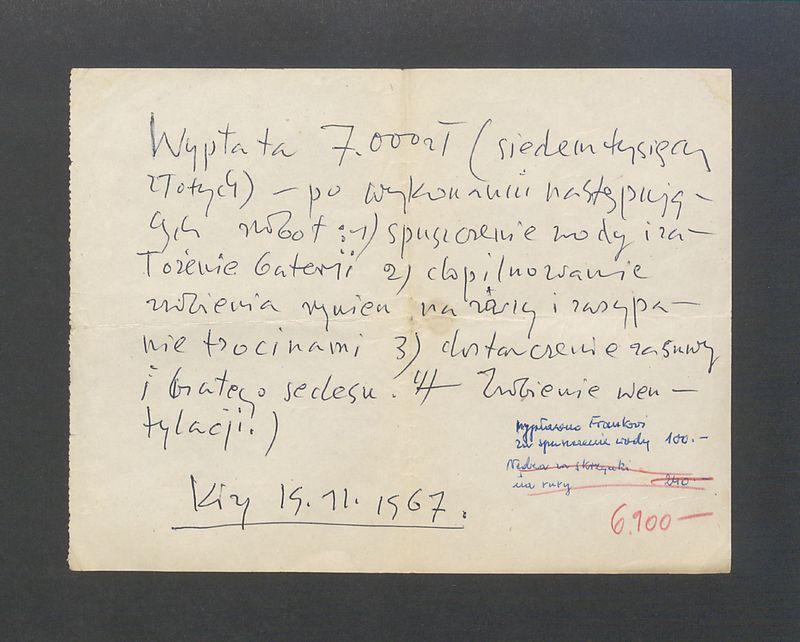 Wypłata 7.000 zł (siedem tysięcy
złotych) – po wykonaniu następują-
cych robót: 1) spuszczenie wody i za-
łożenie baterji 2) dopilnowanie
zrobienia rynien na rury i zasypa-
nie trocinami 3) dostarczenie zasuwy
i białego sedesu. 4) Zrobienie wen-
tylacji.)
wypłacono Frankowi
za spuszczenie wody 100.-
za skrzynki
na rury 240
19.11.1967.
6.900 –